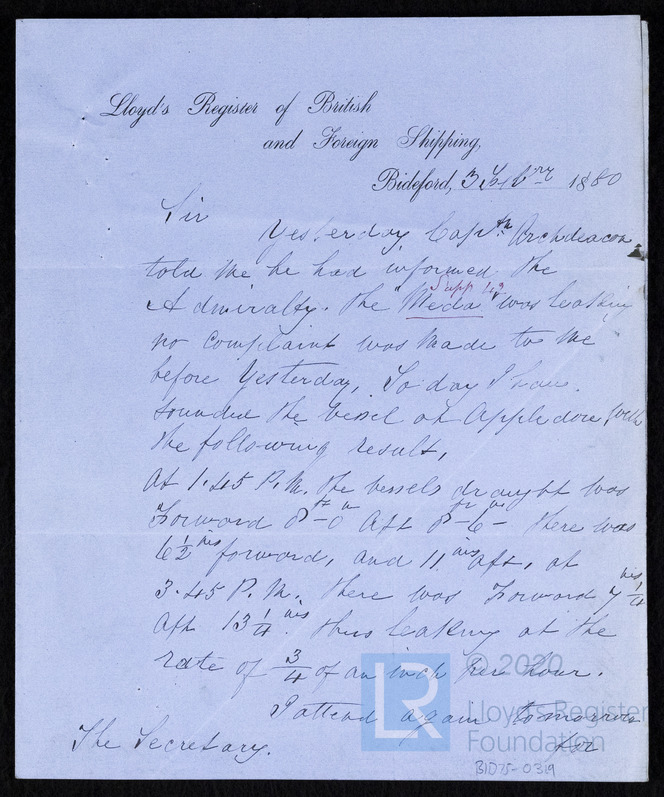 Lloyd's Register of British
and Foreign Shipping,
Bideford, 3 Febry 1880
Sir
Yesterday Captn Archdeacon
told me he had informed the
Supp
Admiralty. the "Meda" was leaking
no complaint was made to me
before yesterday, To day I have
sounded the vessel at Appledore, with
the following result,
At 1.45 P.M. the vessels draught was
Forward 8ft-0in Aft 8ft-6in- there was
6 1/2 ins forward, and 11 ins aft, at
3.45 P.M. there was Forward 7 1/4 ins
Aft 13 1/4 ins. thus leaking at the
rate of 3/4 of an inch per hour.
I attend again tomorrow
The Secretary. for
LR
© 2020
Lloyd's Register
Foundation
BID75-0319